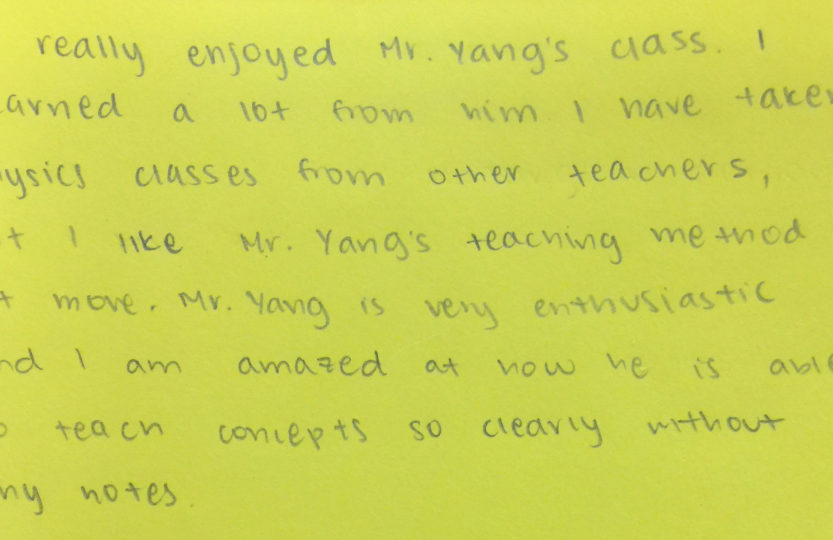 really enjoyed Mr. Yang's class. I
arned a lot from him I have taken
ysics classes from other teachers,
t I like Mr. Yang's teaching method
t more. Mr. Yang is very enthusiastic
nd I am amazed at how he is able
o teach concepts so clearly without
ny notes.